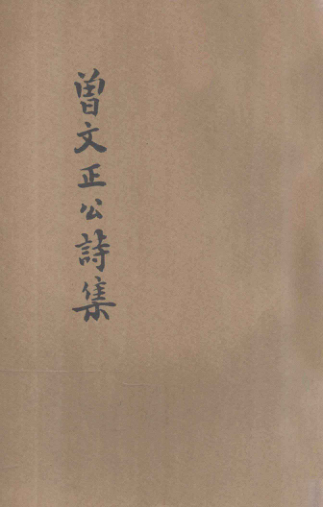 曾文正公詩集